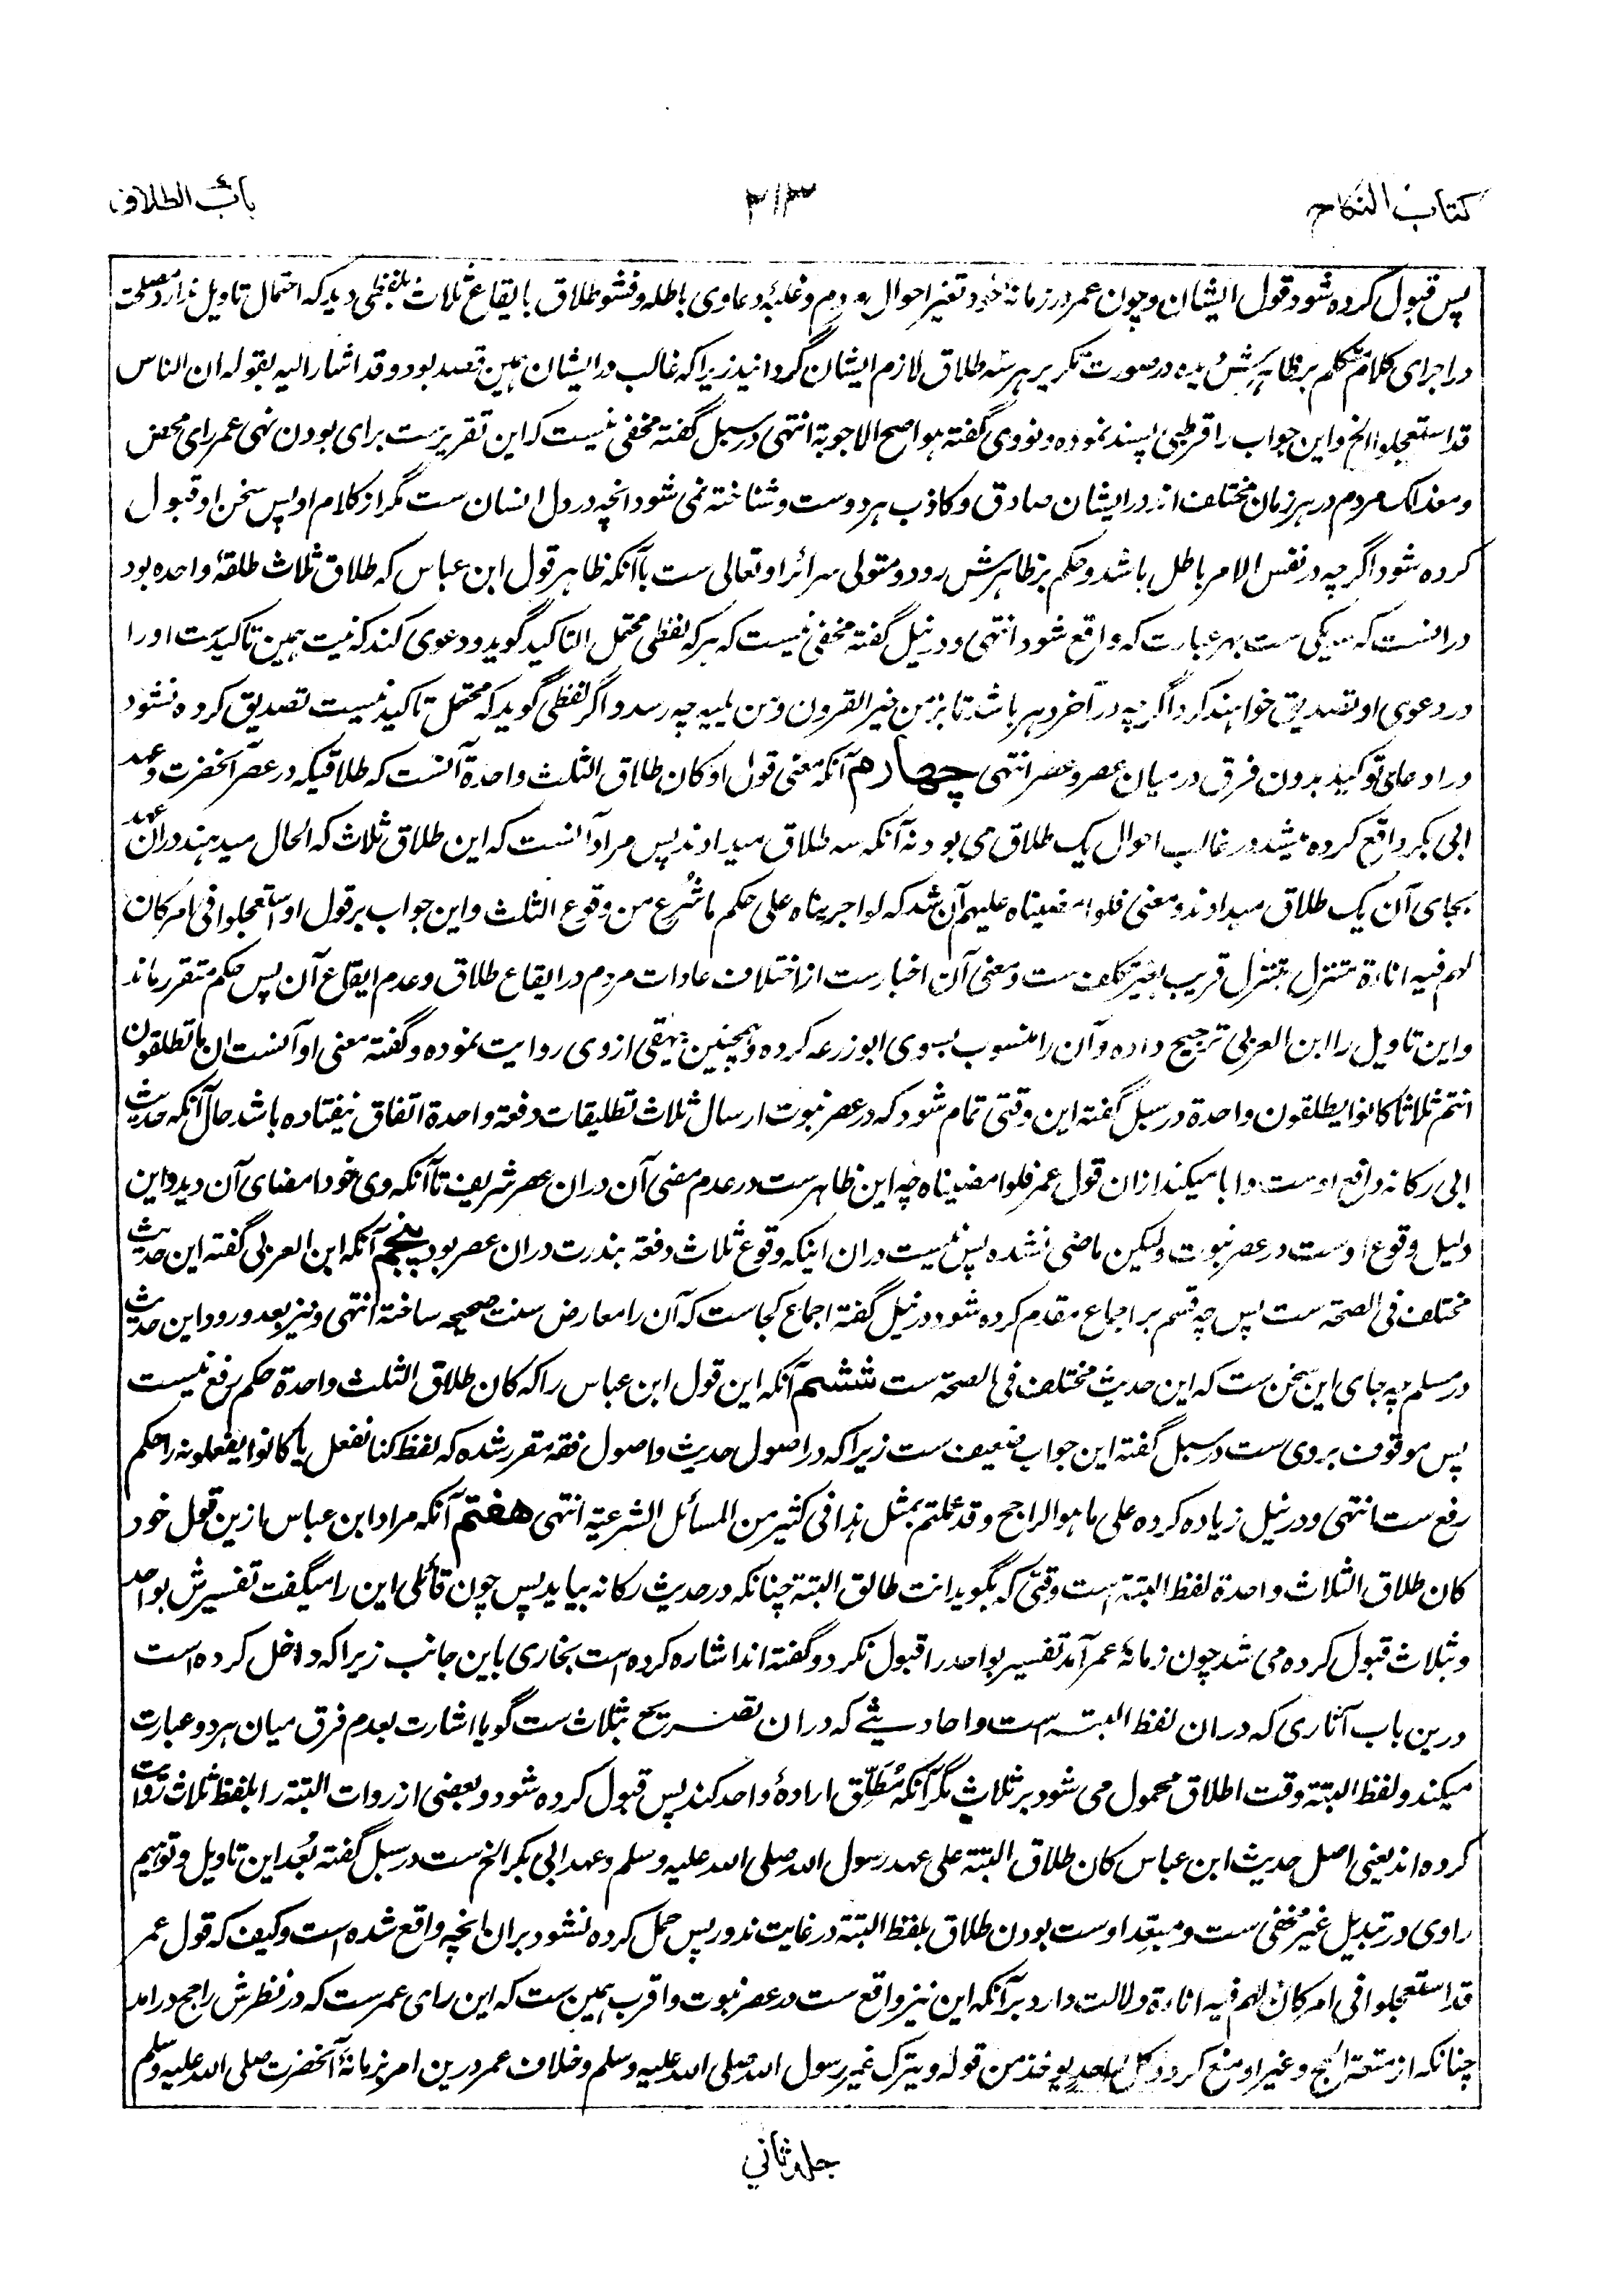 کتاب النکاح
۳۱۳
باب الطلاق
پس قبول کرده شود قول ایشان و چون عمر در زمانهٔ خود تغیر احوال مردم و غلبهٔ دعاوی باطله و فشو طلاق بایقاع ثلاث بلفظی دید که احتمال تاویل ندارد مصلحت
در اجرای کلام متکلم بر ظاهرش دیده در صورت تکریر هر سه طلاق لازم ایشان گردانید زیرا که غالب در ایشان همین قصد بود و قد اشار الیه بقوله ان الناس
قد استعجلوا الخ و این جواب را قرطبی پسند نموده و نووی گفته هو اصح الاجوبة انتهی در سبل گفته مخفی نیست که این تقریرست برای بودن نهی عمر رای محض
و معذلک مردم در هر زمان مختلف اند در ایشان صادق و کاذب هر دوست و شناخته نمی شود انچه در دل انسان ست مگر از کلام او پس سخن او قبول
کرده شود اگرچه در نفس الامر باطل باشد و حکم بر ظاهرش رود و متولی سرائر او تعالی ست با آنکه ظاهر قول ابن عباس که طلاق ثلاث طلقهٔ واحده بود
در انست که یکی ست بهر عبارت که واقع شود انتهی و در نیل گفته مخفی نیست که هر که لفظی محتمل التاکید گوید و دعوی کند که نیت همین تاکیدست او را
در دعوی او تصدیق خواهند کرد اگرچه در آخر دهر باشد تا بزمن خیر القرون و من یلیه چه رسد و اگر لفظی گوید که محتمل تاکید نیست تصدیق کرده نشود
در ادعای توکید بدون فرق درمیان عصر و عصر انتهی چهارم آنکه معنی قول او کان طلاق الثلث واحدة آنست که طلاقیکه در عصر آنحضرت و عهد
ابی بکر واقع کرده میشد در غالب احوال یک طلاق می بود نه آنکه سه طلاق میدادند پس مراد آنست که این طلاق ثلاث که الحال میدهند دران عهد
بجای آن یک طلاق میدادند و معنی فلو امضیناه علیهم آن شد که لو اجریناه علی حکم ما شرع من وقوع الثلث و این جواب بر قول او استعجلوا فی امر کان
لهم فیه اناءة متنزل بتنزل قریب بغیر تکلف ست و معنی آن اخبارست از اختلاف عادات مردم در ایقاع طلاق و عدم ایقاع آن پس حکم متقرر ماند
و این تاویل را ابن العربی ترجیح داده و آن را منسوب بسوی ابوزرعه کرده و همچنین بیهقی از وی روایت نموده و گفته معنی او آنست ان ما تطلقون
انتم ثلاثا کانوا یطلقون واحدة در سبل گفته این وقتی تمام شود که در عصر نبوت ارسال ثلاث تطلیقات دفعة واحدة اتفاق نیفتاده باشد حال آنکه حدیث
ابی رکانه دافع اوست و ابا میکند ازان قول عمر فلو امضیناه چه این ظاهرست در عدم مضی آن دران عصر شریف تا آنکه وی خود امضای آن دید و این
دلیل وقوع اوست در عصر نبوت ولیکن ماضی نشده پس نیست دران اینکه وقوع ثلاث دفعة بندرت دران عصر بود پنجم آنکه ابن العربی گفته این حدیث
مختلف فی الصحة ست پس چه قسم بر اجماع مقدم کرده شود در نیل گفته اجماع کجاست که آن را معارض سنت صحیحه ساخته انتهی و نیز بعد ورود این حدیث
در مسلم چه جای این سخن ست که این حدیث مختلف فی الصحة ست ششم آنکه این قول ابن عباس را که کان طلاق الثلث واحدة حکم رفع نیست
پس موقوف بر وی ست در سبل گفته این جواب ضعیف ست زیرا که در اصول حدیث و اصول فقه مقرر شده که لفظ کنا نفعل یا کانوا یفعلونه را حکم
رفع ست انتهی و در نیل زیاده کرده علی ما هو الراجح و قد علمتم بمثل هذا فی کثیر من المسائل الشرعیة انتهی هفتم آنکه مراد ابن عباس ازین قول خود
کان طلاق الثلاث واحدة لفظ البتة است وقتی که بگوید انت طالق البتة چنانکه در حدیث رکانه بیاید پس چون قائلی این را میگفت تفسیرش بواحد
و ثلاث قبول کرده می شد چون زمانهٔ عمر آمد تفسیر بواحد را قبول نکرد و گفته اند اشاره کرده است بخاری باین جانب زیرا که داخل کرده است
درین باب آثاری که دران لفظ البتة است و احادیثی که دران تصریح بثلاث ست گویا اشارت بعدم فرق میان هر دو عبارت
میکند و لفظ البتة وقت اطلاق محمول می شود بر ثلاث مگر آنکه مُطَلِّق ارادهٔ واحد کند پس قبول کرده شود و بعضی از روات البتة را بلفظ ثلاث روایت
کرده اند یعنی اصل حدیث ابن عباس کان طلاق البتة علی عهد رسول الله صلی الله علیه وسلم و عهد ابی بکر الخ ست در سبل گفته بُعد این تاویل و توهیم
راوی در تبدیل غیر مخفی ست و مبعد اوست بودن طلاق بلفظ البتة در غایت ندور پس حمل کرده نشود بران انچه واقع شده است و کیف که قول عمر
قد استعجلوا فی امر کان لهم فیه اناءة دلالت دارد بر آنکه این نیز واقع ست در عصر نبوت و اقرب همین ست که این رای عمرست که در نظرش راجح درامد
چنانکه از متعة الحج و غیر او منع کرد و کل احد یوخذ من قوله و یترک غیر رسول الله صلی الله علیه وسلم و خلاف عمر درین امر بزمانهٔ آنحضرت صلی الله علیه وسلم
جلد ثانی